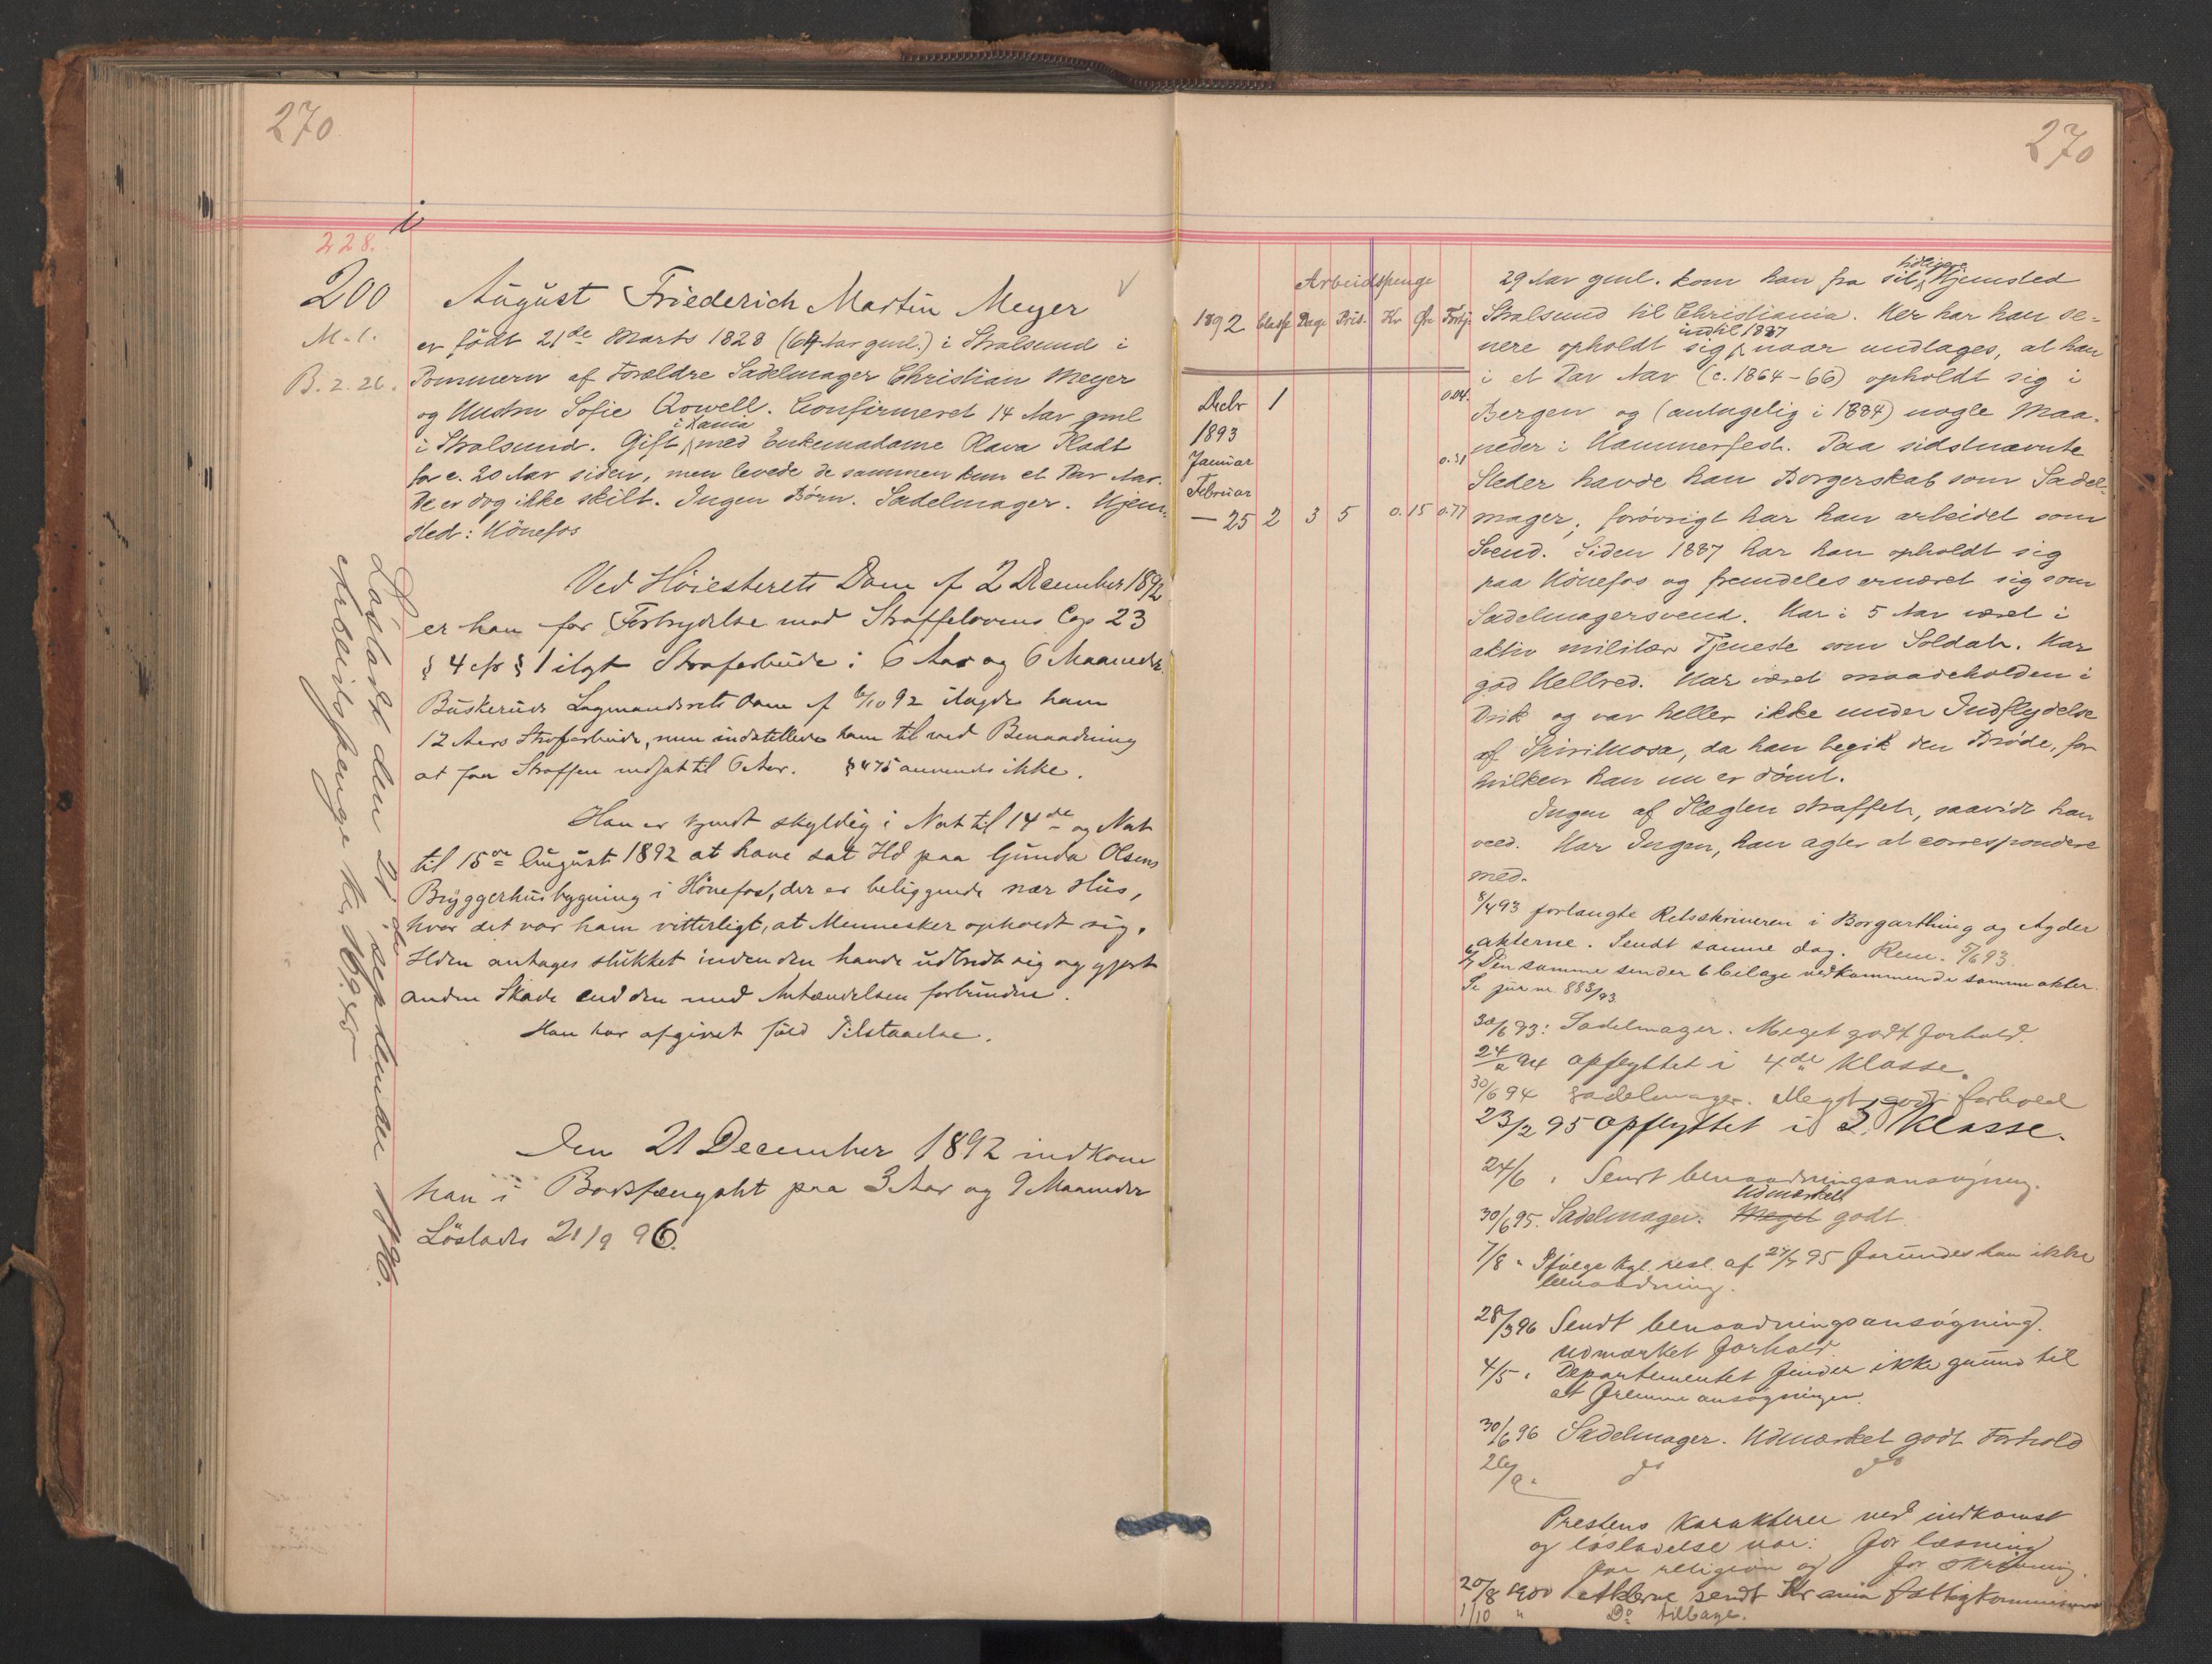 270
228.
200
M. 1.
B. 2. 26.
August Friederich Martin Meyer
er født 21de Marts 1828 (64 Aar gml.) i Stralsund i
Pommern af Forældre Sadelmager Christian Meyer
og Hustru Sofie Qowell. Confirmeret 14 Aar gml
i Stralsund. Gift i Xania med Enkemadame Olava Pladt
for c. 20 Aar siden, men levede de sammen kun et Par Aar.
De er dog ikke skilt. Ingen Børn. Sadelmager. Hjem-
sted: Hönefos
Ved Høiesterets Dom af 2 December 1892
er han for Forbrydelse mod Straffelovens Cap 23
§ 4 cfr § 1 ilagt Strafarbeide i 6 Aar og 6 Maaneder.
Buskeruds Lagmandsrets Dom af 6/10 92 ilagde ham
12 Aars Strafarbeide, men indstillede ham til ved Benaadning
at faa Straffen nedsat til 6 Aar. § 475 anvendes ikke.
Han er kjendt skyldig i Nat til 14de og Nat
til 15de August 1892 at have sat Ild paa Gunda Olsens
Bryggerhusbygning i Hönefos, der er beliggende nær Hus,
hvor det var ham vitterligt, at Mennesker opholdt sig.
Ilden antages slukket inden den havde udbredt sig og gjort
anden Skade end den med Antændelsen forbundne.
Han har afgivet fuld Tilstaaelse.
Den 21 December 1892 indkom
han i Bodsfængslet paa 3 Aar og 9 Maaneder
Löslades 21/9 96.
Løsladt den 21de september 1896.
Arbeidspenge Kr.
270
Arbeidspenge
1892 Classe Dage Præd. Kr Øre Fortj.
Decbr 1 0.04.
1893
Januar 0.31
Februar
— 25 2 3 5 0.15 0.77
29 Aar gml. kom han fra sit tidligere Hjemsted
Stralsund til Christiania. Her har han se-
nere opholdt sig indtil 1887 naar undtages, at han
i et Par Aar (c. 1864-66) opholdt sig i
Bergen og (antagelig i 1884) nogle Maa-
neder i Hammerfest. Paa sidstnævnte
Steder havde han Borgerskab som Sadel-
mager, forøvrigt har han arbeidet som
Svend. Siden 1887 har han opholdt sig
paa Hönefos og fremdeles ernæret sig som
Sadelmagersvend. Har i 5 Aar været i
aktiv militær Tjeneste som Soldat. Har
god Helbred. Har været maadeholden i
Drik og var heller ikke under Indflydelse
af Spirituosa, da han begik den Brøde, for
hvilken han nu er dömt.
Ingen af Slægten straffet, saavidt han
veed. Har Ingen, han agter at correspondere
med.
8/4 93 forlangte Retsskriveren i Borgarthing og Agder
akterne. Sendt samme dag. Rem. 5/6 93.
Den samme sender 6 bilage vedkommende samme akter.
Se jour nr. 883/93
30/6 93: Sadelmager. Meget godt forhold.
24/2 94 opflyttet i 4de Klasse.
30/6 94 Sadelmager. Meget godt forhold
23/2 95 opflyttet i 3. Klasse.
24/6 " Sendt benaadningsansøgning.
30/6 95. Sadelmager. Meget Udmærket godt
7/8 " Ifølge kgl. resl. af 27/7 95 forundes han ikke
benaadning.
28/3 96 Sendt benaadningsansøgning.
Udmærket forhold.
4/5 " Departementet finder ikke grund til
at fremme ansøgningen.
30/6 96 Sadelmager. Udmærket godt Forhold
20/9 " do do
Prestens karakterer ved indkomst
og løsladelse var: for læsning
for religion og for skrivning.
20/8 1900 Akterne sendt Kr.ania fattigkommission
1/10 " Do tilbage.